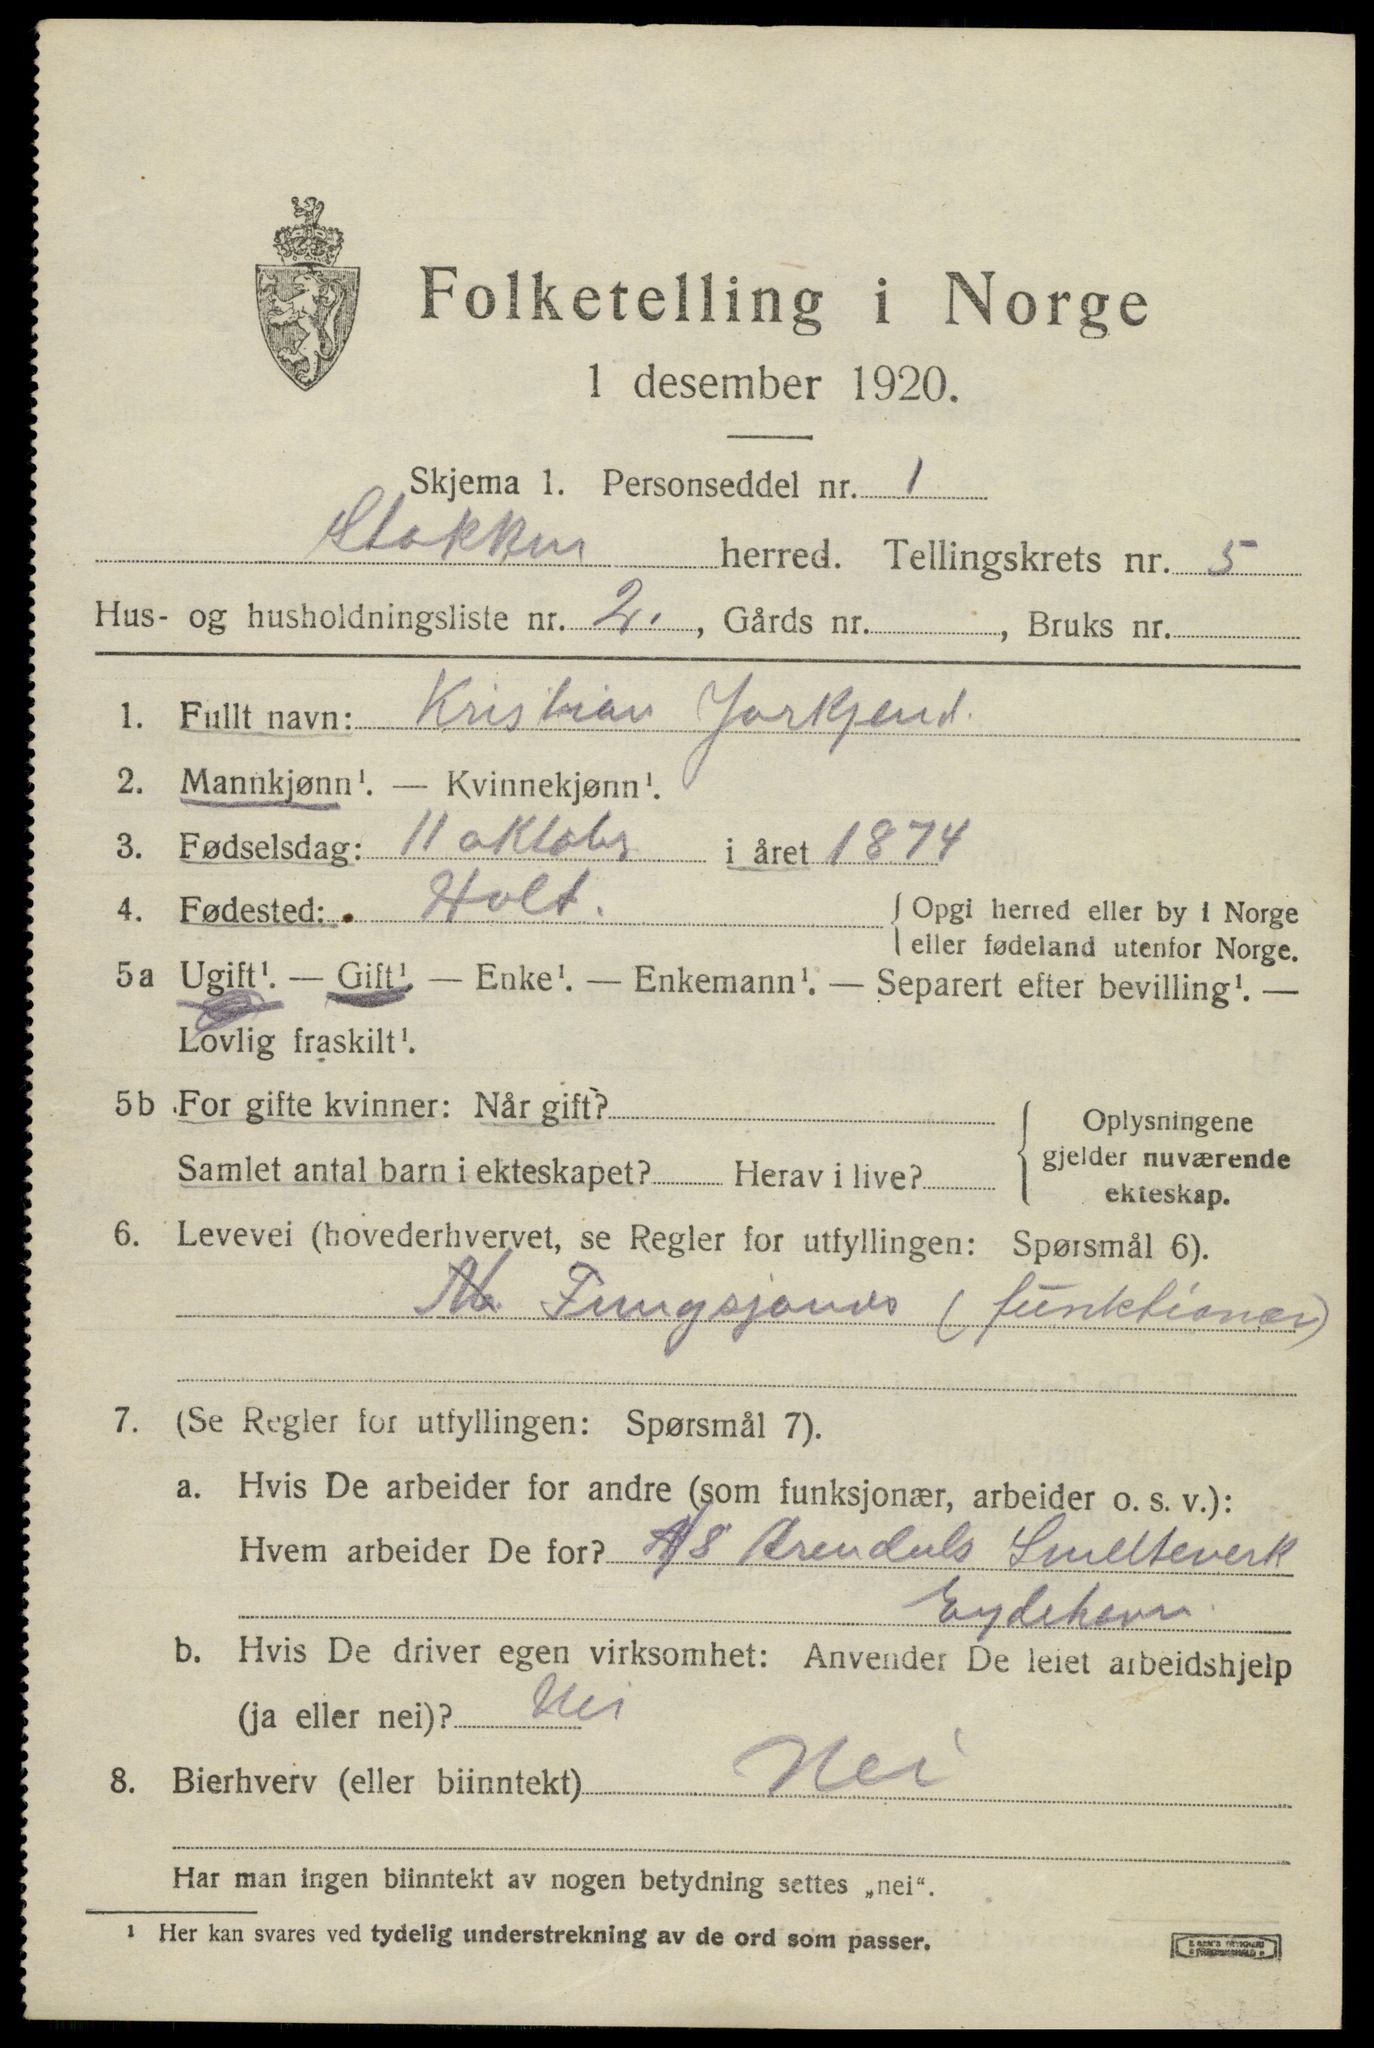 Folketelling i Norge
1 desember 1920.
Skjema 1. Personseddel nr. 1
Stokken herred. Tellingskrets nr. 5
Hus- og husholdningsliste nr. 2. , Gårds nr. , Bruks nr.
1. Fullt navn: Kristian Jorkjend.
2. Mannkjønn¹. — Kvinnekjønn¹.
3. Fødselsdag: 11 oktobr i året 1874
4. Fødested: Holt. { Opgi herred eller by i Norge
eller fødeland utenfor Norge.
5a Ugift¹. — Gift¹. — Enke¹. — Enkemann¹. — Separert efter bevilling¹. —
Lovlig fraskilt¹.
5b For gifte kvinner: Når gift? { Oplysningene
gjelder nuværende
Samlet antal barn i ekteskapet? Herav i live?
ekteskap.
6. Levevei (hovederhvervet, se Regler for utfyllingen: Spørsmål 6).
Fungsjonær (funktionær)
7. (Se Regler for utfyllingen: Spørsmål 7).
a. Hvis De arbeider for andre (som funksjonær, arbeider o. s. v.):
Hvem arbeider De for? A/S Arendals Smelteverk
Eydehavn.
b. Hvis De driver egen virksomhet: Anvender De leiet arbeidshjelp
(ja eller nei)? Nei
8. Bierhverv (eller biinntekt) Nei
Har man ingen biinntekt av nogen betydning settes „nei“.
¹ Her kan svares ved tydelig understrekning av de ord som passer.